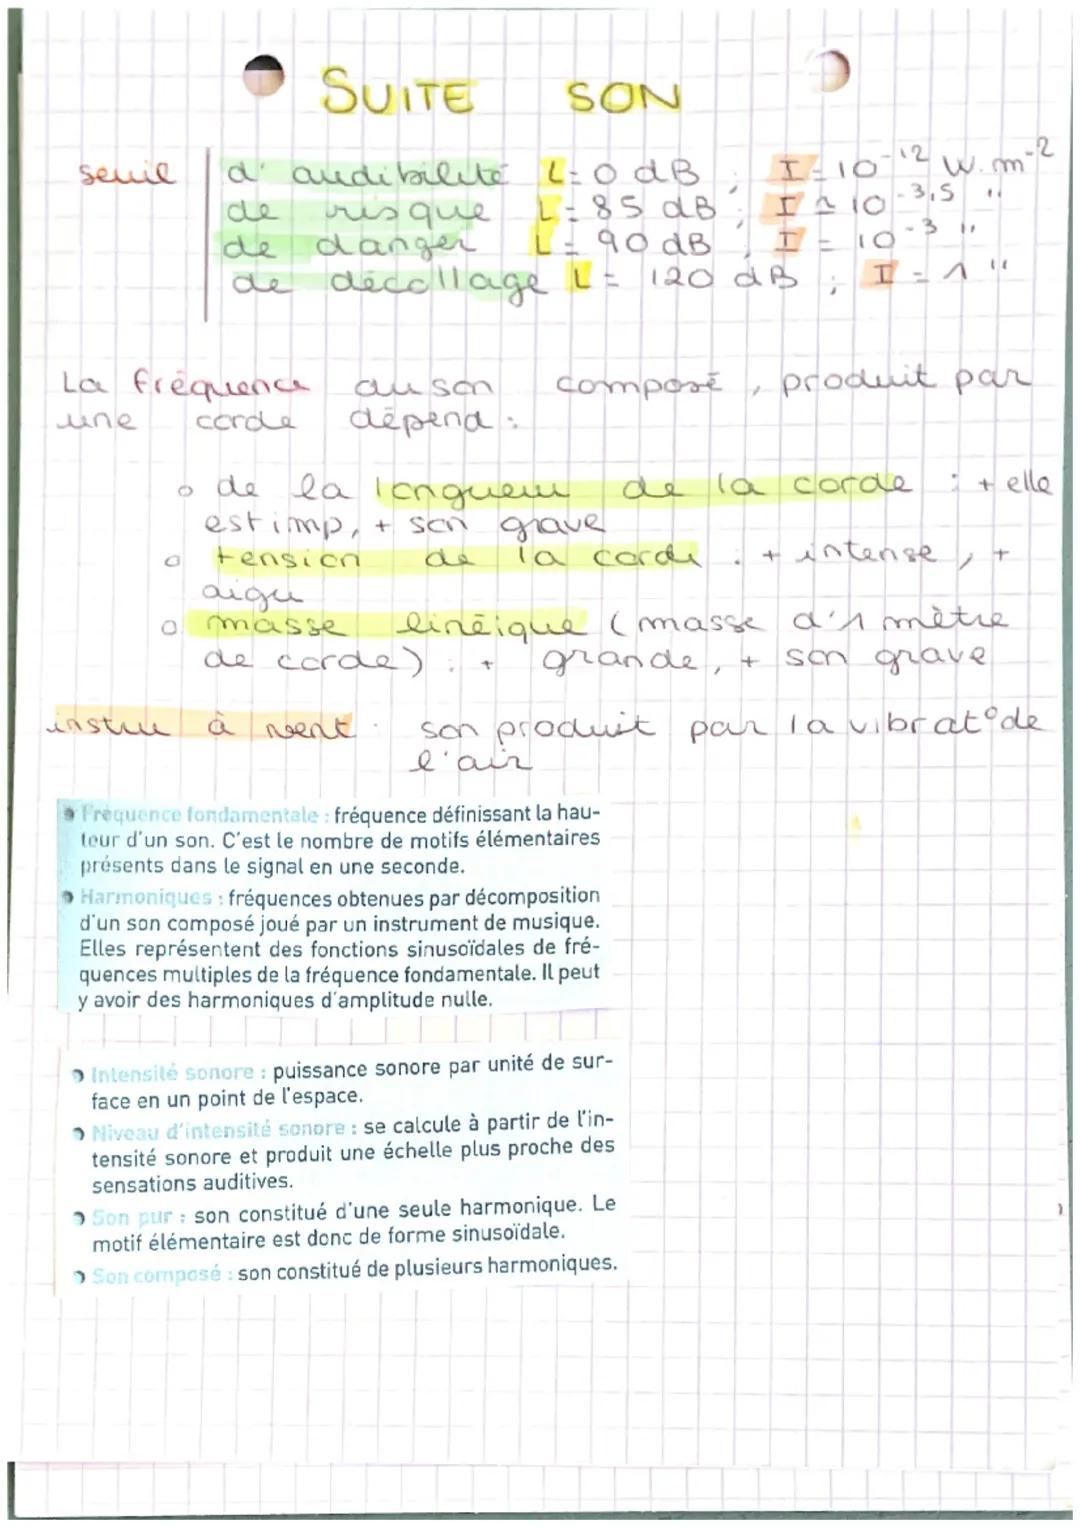 SUITE SON
seuil d'audibilité L=0 dB ; I=10⁻¹² W.m⁻²
de risque L=85 dB ; I≃10⁻³,⁵ "
de danger L=90 dB ; I=10⁻³ "
de décollage L=120 dB ; I=1 "
La fréquence du son composé, produit par
une corde dépend :
o de la longueur de la corde : + elle
est imp, + son grave
o tension de la corde : + intense, +
aigu
o masse linéique (masse d'1 mètre
de corde) : + grande, + son grave
instru à vent : son produit par la vibrat° de
l'air
Fréquence fondamentale : fréquence définissant la hau-
teur d'un son. C'est le nombre de motifs élémentaires
présents dans le signal en une seconde.
Harmoniques : fréquences obtenues par décomposition
d'un son composé joué par un instrument de musique.
Elles représentent des fonctions sinusoïdales de fré-
quences multiples de la fréquence fondamentale. Il peut
y avoir des harmoniques d'amplitude nulle.
Intensité sonore : puissance sonore par unité de sur-
face en un point de l'espace.
Niveau d'intensité sonore : se calcule à partir de l'in-
tensité sonore et produit une échelle plus proche des
sensations auditives.
Son pur : son constitué d'une seule harmonique. Le
motif élémentaire est donc de forme sinusoïdale.
Son composé : son constitué de plusieurs harmoniques.